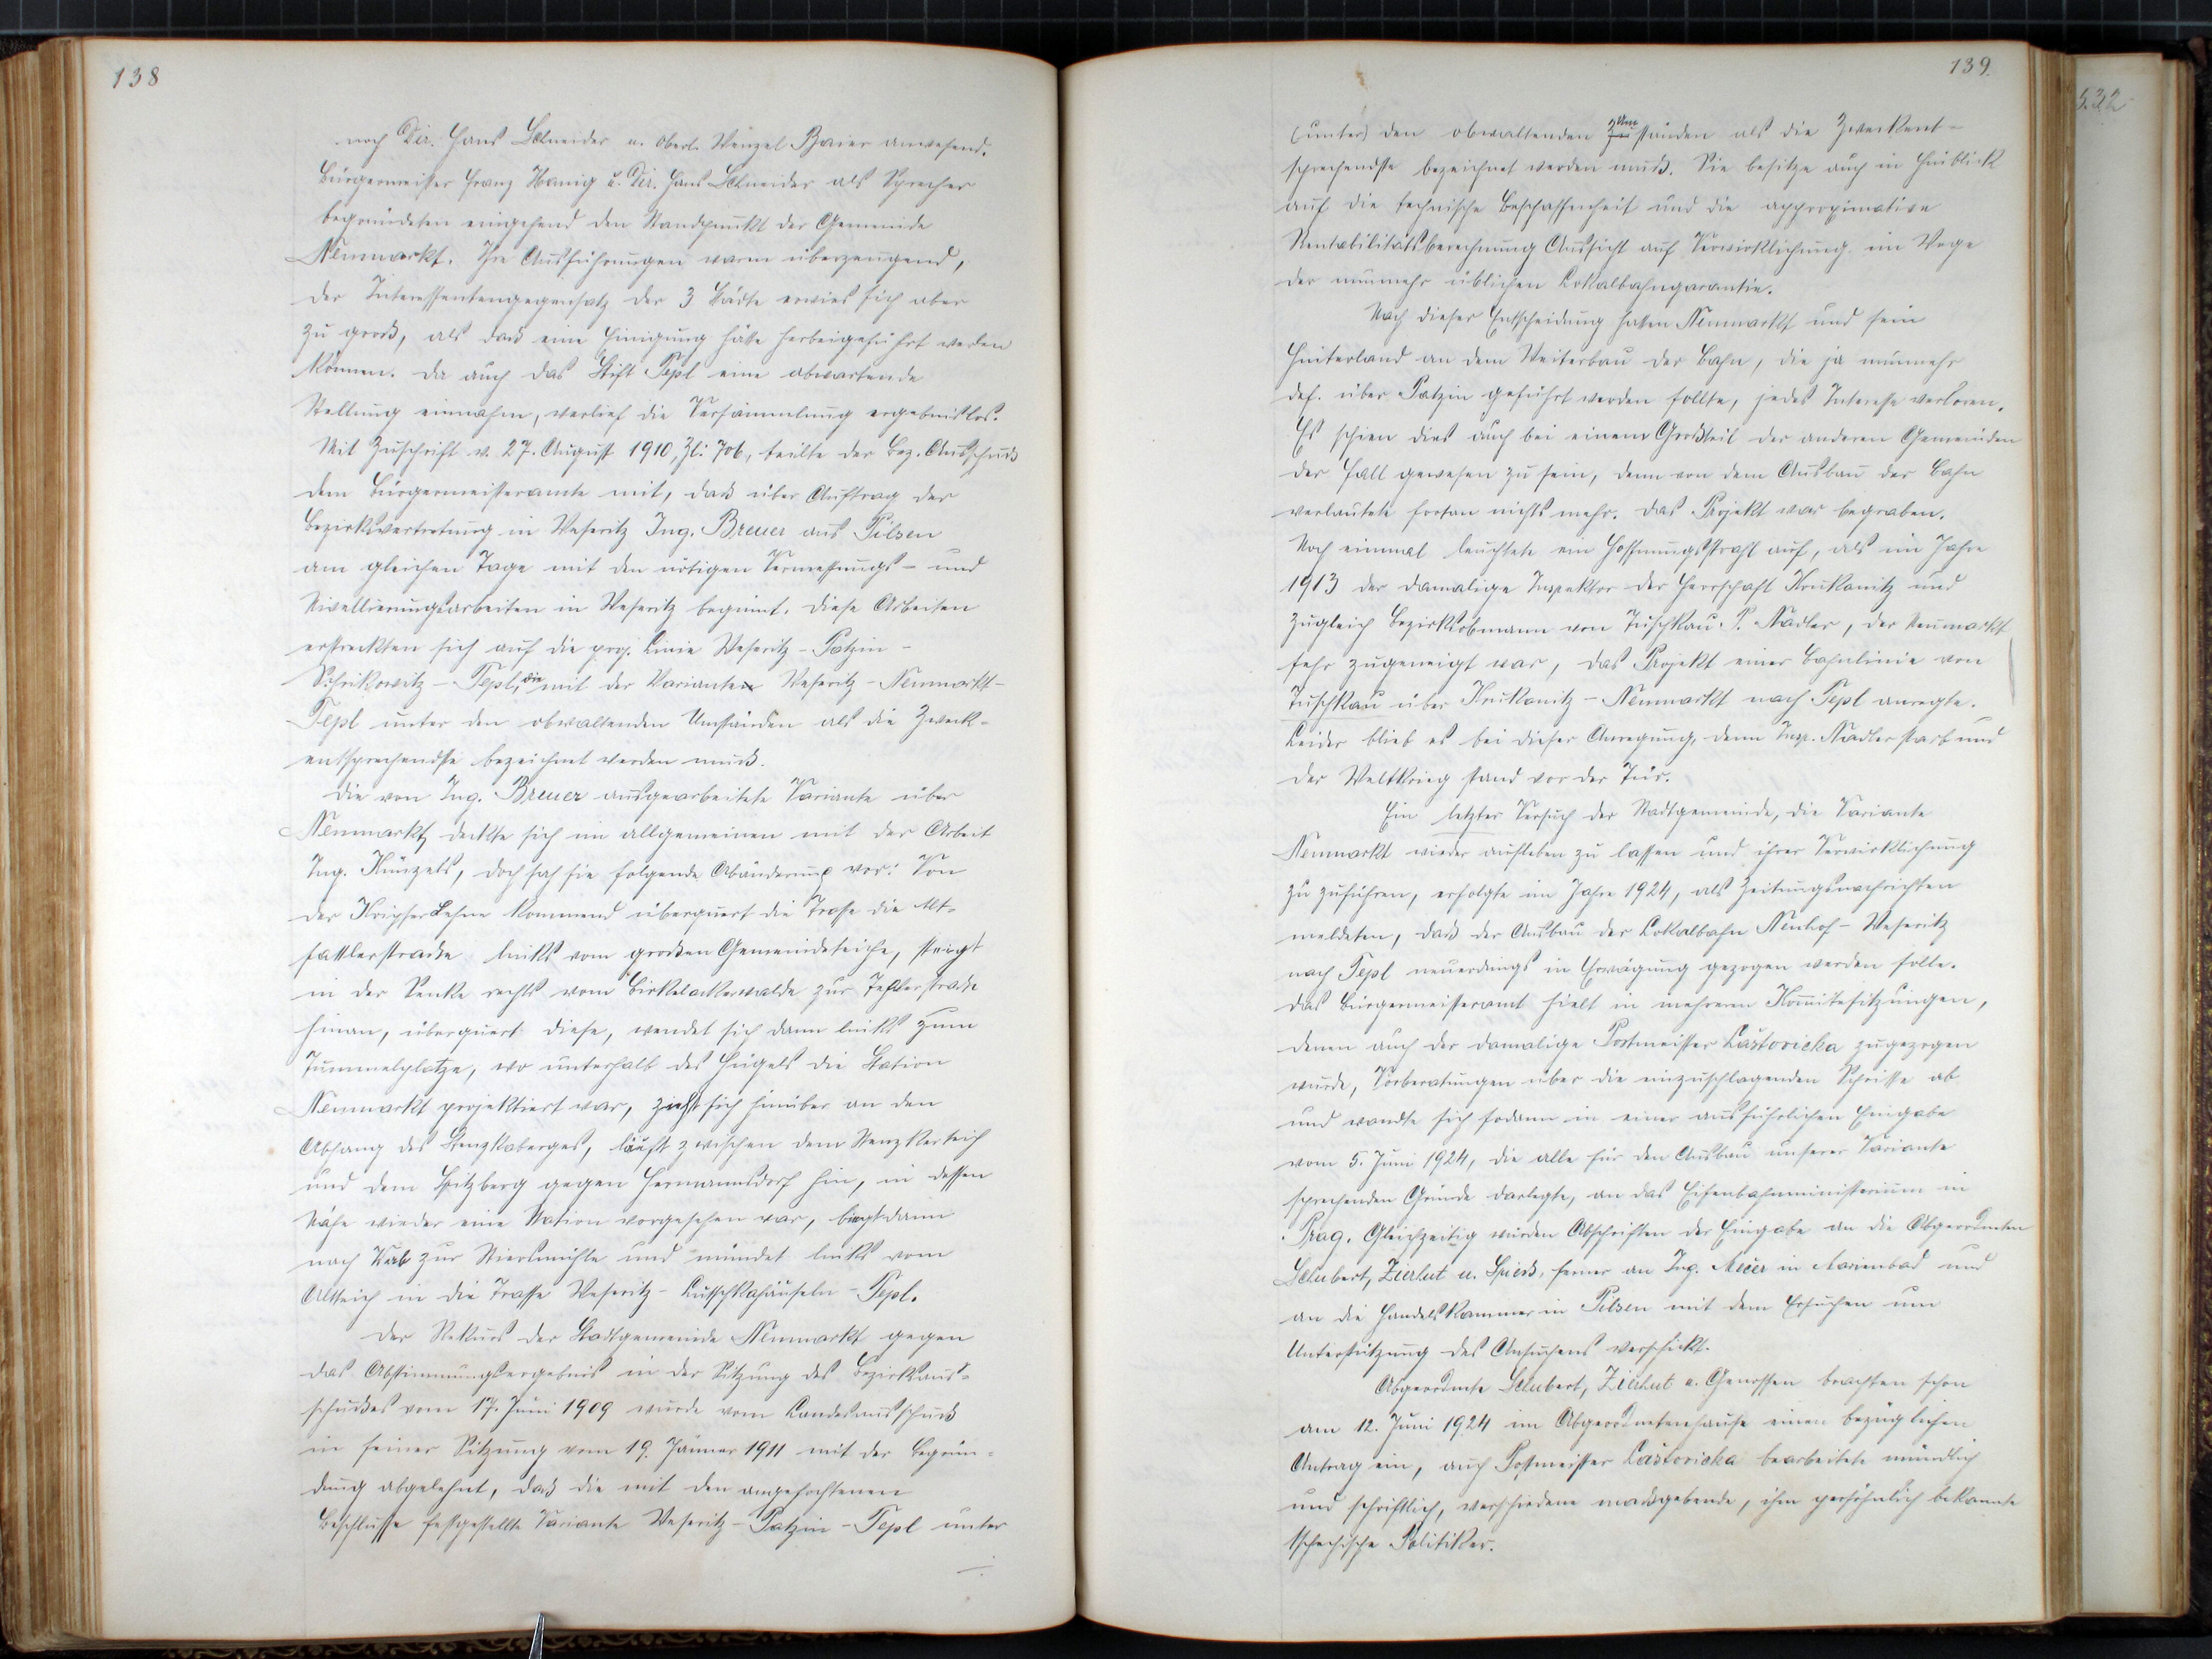 138
noch Dir. Hans Schneider u. Oberl. Wenzel Baier anwesend.
Bürgermeister Franz Hanig u. Dir. Hans Schneider als Sprecher
begründeten eingehend den Standpunkt der Gemeinde
Neumarkt. Ihre Ausführungen waren überzeugend,
der Interessentengegensatz der 3 Städte erwies sich aber
zu groß, als daß eine Einigung hätte herbeigeführt werden
können. Da auch das Stift Tepl eine abwartende
Stellung einnahm, verlief die Versammlung ergebnislos.
Mit Zuschrift v. 27. August 1910, Zl: 706, teilte der Bez. Ausschuß
dem Bürgermeisteramte mit, daß über Auftrag der
Bezirksvertretung in Weseritz Ing. Breuer aus Pilsen
am gleichen Tage mit den nötigen Vermessungs- und
Nivellierungsarbeiten in Weseritz beginnt. Diese Arbeiten
erstreckten sich auf die proj. Linie Weseritz - Patzin -
Schrikowitz - Tepl, die mit der Varianten Weseritz - Neumarkt -
Tepl unter den obwaltenden Umständen als die Zweck-
entsprechendste bezeichnet werden muß.
Die von Ing. Breuer ausgearbeitete Variante über
Neumarkt deckte sich im allgemeinen mit der Arbeit
Ing. Künzels, doch sah sie folgende Abänderung vor: Von
der Kripser Lehne kommend überquert die Trasse die Alt-
sattlerstraße links vom großen Gemeindeteiche, steigt
in der Senke rechts vom Birkelackerwalde zur Teplerstraße
hinan, überquert diese, wendet sich dann links zum
Tummelplatze, wo unterhalb des Hügels die Station
Neumarkt projektiert war, zieht sich hinüber an den
Abhang des Stenzkaberges, läuft zwischen dem Stenzkerteich
und dem Spitzberg gegen Hermannsdorf hin, in dessen
Nähe wieder eine Station vorgesehen war, biegt dann
nach Rab zur Stierlmühle und mündet links vom
Altteich in die Trasse Weseritz - Kutschkahäuseln - Tepl.
Der Rekurs der Stadtgemeinde Neumarkt gegen
das Abstimmungsergebnis in der Sitzung des Bezirksaus-
schußes vom 17. Juni 1909 wurde vom Landesausschuß
in seiner Sitzung vom 19. Jänner 1911 mit der Begrün-
dung abgelehnt, daß die mit den angefochtenen
Beschlusse festgestellte Variante Weseritz - Patzin - Tepl unter
./.
139.
(unter) den obwaltenden Umständen als die Zweckent-
sprechendste bezeichnet werden muß. Sie besitze auch in Hinblick
auf die technische Beschaffenheit und die approximative
Rentabilitätsberechnung Aussicht auf Verwirklichung im Wege
der nunmehr üblichen Lokalbahngarantie.
Nach dieser Entscheidung hatten Neumarkt und sein
Hinterland an dem Weiterbau der Bahn, die ja nunmehr
def. über Patzin geführt werden sollte, jedes Interesse verloren.
Es schien dies auch bei einem Großteil der anderen Gemeinden
der Fall gewesen zu sein, denn von dem Ausbau der Bahn
verlautete fortan nichts mehr. Das Projekt war begraben.
Noch einmal leuchtete ein Hoffnungsstrahl auf, als im Jahre
1913 der damalige Inspektor der Herrschaft Krukanitz und
zugleich Bezirksobmann von Tuschkau: P. Nadler, der Neumarkt
sehr zugeneigt war, das Projekt einer Bahnlinie von
Tuschkau über Krukanitz - Neumarkt nach Tepl anregte.
Leider blieb es bei dieser Anregung, denn Insp. Nadler starb und
der Weltkrieg stand vor der Tür.
Ein letzter Versuch der Stadtgemeinde, die Variante
Neumarkt wieder aufleben zu lassen und ihrer Verwirklichung
zu zuführen, erfolgte im Jahre 1924, als Zeitungsnachrichten
meldeten, daß der Ausbau der Lokalbahn Neuhof - Weseritz
nach Tepl neuerdings in Erwägung gezogen werden solle.
Das Bürgermeisteramt hielt in mehreren Komitesitzungen,
denen auch der damalige Postmeister Lastovicka zugezogen
wurde, Vorberatungen über die einzuschlagenden Schritte ab
und wandte sich sodann in einer ausführlichen Eingabe
vom 5. Juni 1924, die alle für den Ausbau unserer Variante
sprechenden Gründe darlegte, an das Eisenbahnministerium in
Prag. Gleichzeitig wurden Abschriften der Eingabe an die Abgeordneten
Schubert, Zierhut u. Spieß, ferner an Ing. Mečer in Marienbad und
an die Handelskammer in Pilsen mit dem Ersuchen um
Unterstützung des Ansuchens verschickt.
Abgeordnete Schubert, Zierhut u. Genossen brachten schon
am 12. Juni 1924 im Abgeordnetenhause einen bezüglichen
Antrag ein, auch Postmeister Lastovicka bearbeitete mündlich
und schriftlich, verschiedene maßgebende, ihm persönlich bekannte
tschechische Politiker.
532